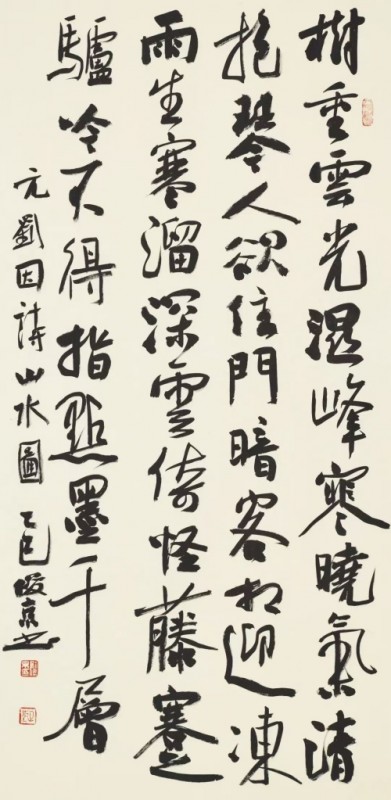 樹重雲光濕峰寒曉氣清
抱琴人欲往門暗客相迎凍
雨生寒溜深雲倚怪藤蹇
驢吟不得指點墨千層
元劉因講山水圖 乙巳俊京書